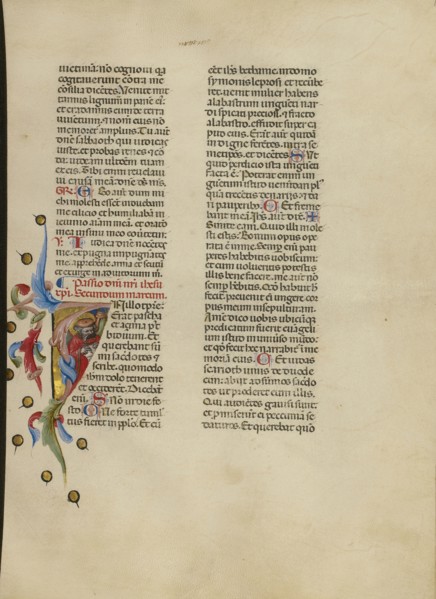 uictimā: nō cognoui qa
cogitauerunt cōtra me
cōsilia dicētes. Uenite mit
tamus lignum in panē ei:
et eradamus eum de terra
uiuētium, et nomē eius nō
memoret amplius. Tu aut̄
dn̄e sabbaoth qui iudicas
iuste, et probas renes et cor
da: uideam ultionē tuam
ex eis. Tibi enim reuelaui
causā meā: dn̄e ds̄ ms̄.
GR. Ego autē dum mi
chi molesti essēt induebam
me cilicio et humiliabā in
ieiunio aīam meā. et oratō
mea in sinu meo cōuertet̄.
℣. Iudica dn̄e nocētes
me. et pugna impugnātes
me. apprehēde arma et scutū
et exurge in adiutoriū m̄.
Passio dn̄i nr̄i ihesu
xp̄i. Secundum marcum.
In illo tp̄re:
Erat pascha
et azima p9
biduum. Et
querebant sū
mi sacerdotes et
scribe. quomodo
ihm̄ dolo tenerent
et occiderēt. Dicebāt
enī. S Nō in die fe
sto. C Ne forte tumul
tus fieret in pplō. Et cū
eēt ihs̄ bethanie. in domo
symonis leprosi et recūbe
ret: uenit mulier habens
alabastrum ungueti nar
di spicati preciosi. et fracto
alabastro. effudit super ca
pito eius. Erāt aut̄ quidā
indigne ferētes. intra se
metipos. et dicētes. S Ut
quid perdicio ista ungueti
facta ē. Poterat enim un
guetum istud uenūdari pl9
quā trecētis denariis. et da
ri paupibus. C Et freme
bant in eā. Ihs̄ aut̄ dix̄. +
Sinite eam. Quid illi mole
sti estis. Bonum opus ope
rata ē in me. Semp eni pau
peres habebitis uobiscum:
et cum uolueritis potestis
illis bene facere. me aut̄ nō
semp hēbitis. Qd̄ habuit h̄
fecit: preuenit ei ungere cor
pus meum in sepulturam.
Amē dico uobis ubicūque
predicatum fuerit euāgeli
um istud in uniuso mūdo:
et qd̄ fecit hec narrabit̄ ī me
moriā eius. C Et iudas
scarioth unus de duode
cim: abiit ad sūmos sacdo
tes ut proderet eum illis.
Qui audiētes gauisi sunt.
et pmiserūt ei peccuniā se
daturos. Et querebat quō